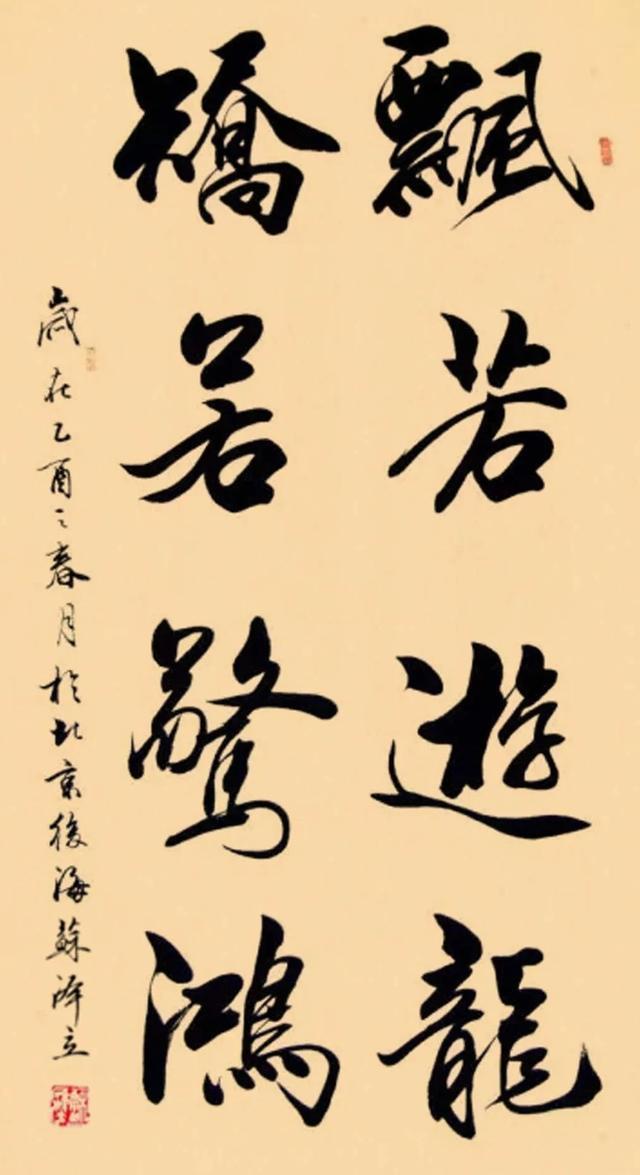 飄若遊龍
矯若驚鴻
歲在乙酉之春月於北京後海蘇澤立